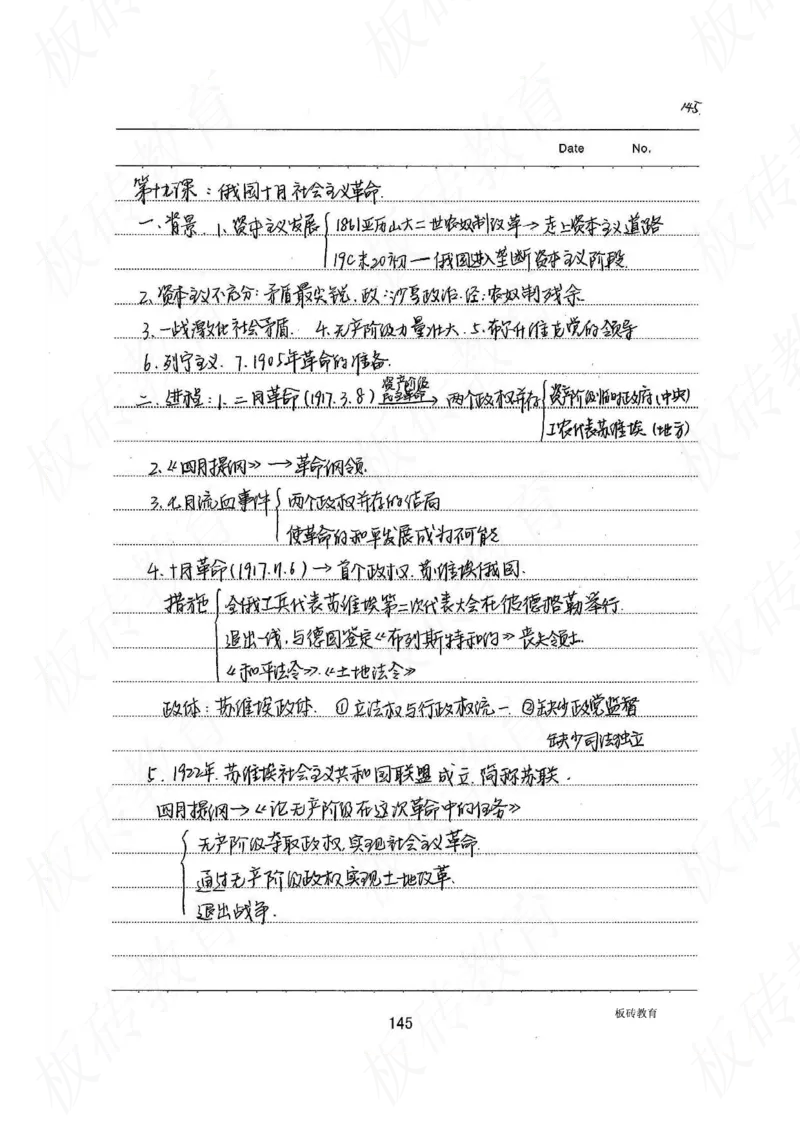 145
Date No.
第十九课：俄国十月社会主义革命.
一、背景. 1、资本主义发展{1861亚历山大二世农奴制改革→走上资本主义道路
19C末20初—俄国进入垄断资本主义阶段.
2、资本主义不充分：矛盾最尖锐. 政：沙皇政治. 经：农奴制残余.
3、一战激化社会矛盾. 4、无产阶级力量壮大. 5、布尔什维克党的领导
6、列宁主义. 7、1905年革命的准备.
二、进程：1、二月革命(1917.3.8) 资产阶级民主革命→ 两个政权并存{资产阶级临时政府(中央)
工农代表苏维埃(地方)
2、《四月提纲》→革命纲领.
3、七月流血事件{两个政权并存的结局
使革命的和平发展成为不可能
4、十月革命(1917.11.6)→首个政权. 苏维埃俄国.
措施{全俄工兵代表苏维埃第二次代表大会在彼德格勒举行.
退出一战,与德国签定《布列斯特和约》丧失领土.
《和平法令》.《土地法令》
政体：苏维埃政体. ①立法权与行政权统一. ②缺少政党监督
缺少司法独立
5、1922年. 苏维埃社会主义共和国联盟成立. 简称苏联.
四月提纲→《论无产阶级在这次革命中的任务》
{无产阶级夺取政权,实现社会主义革命.
通过无产阶级政权实现土地改革.
退出战争.
145
板砖教育